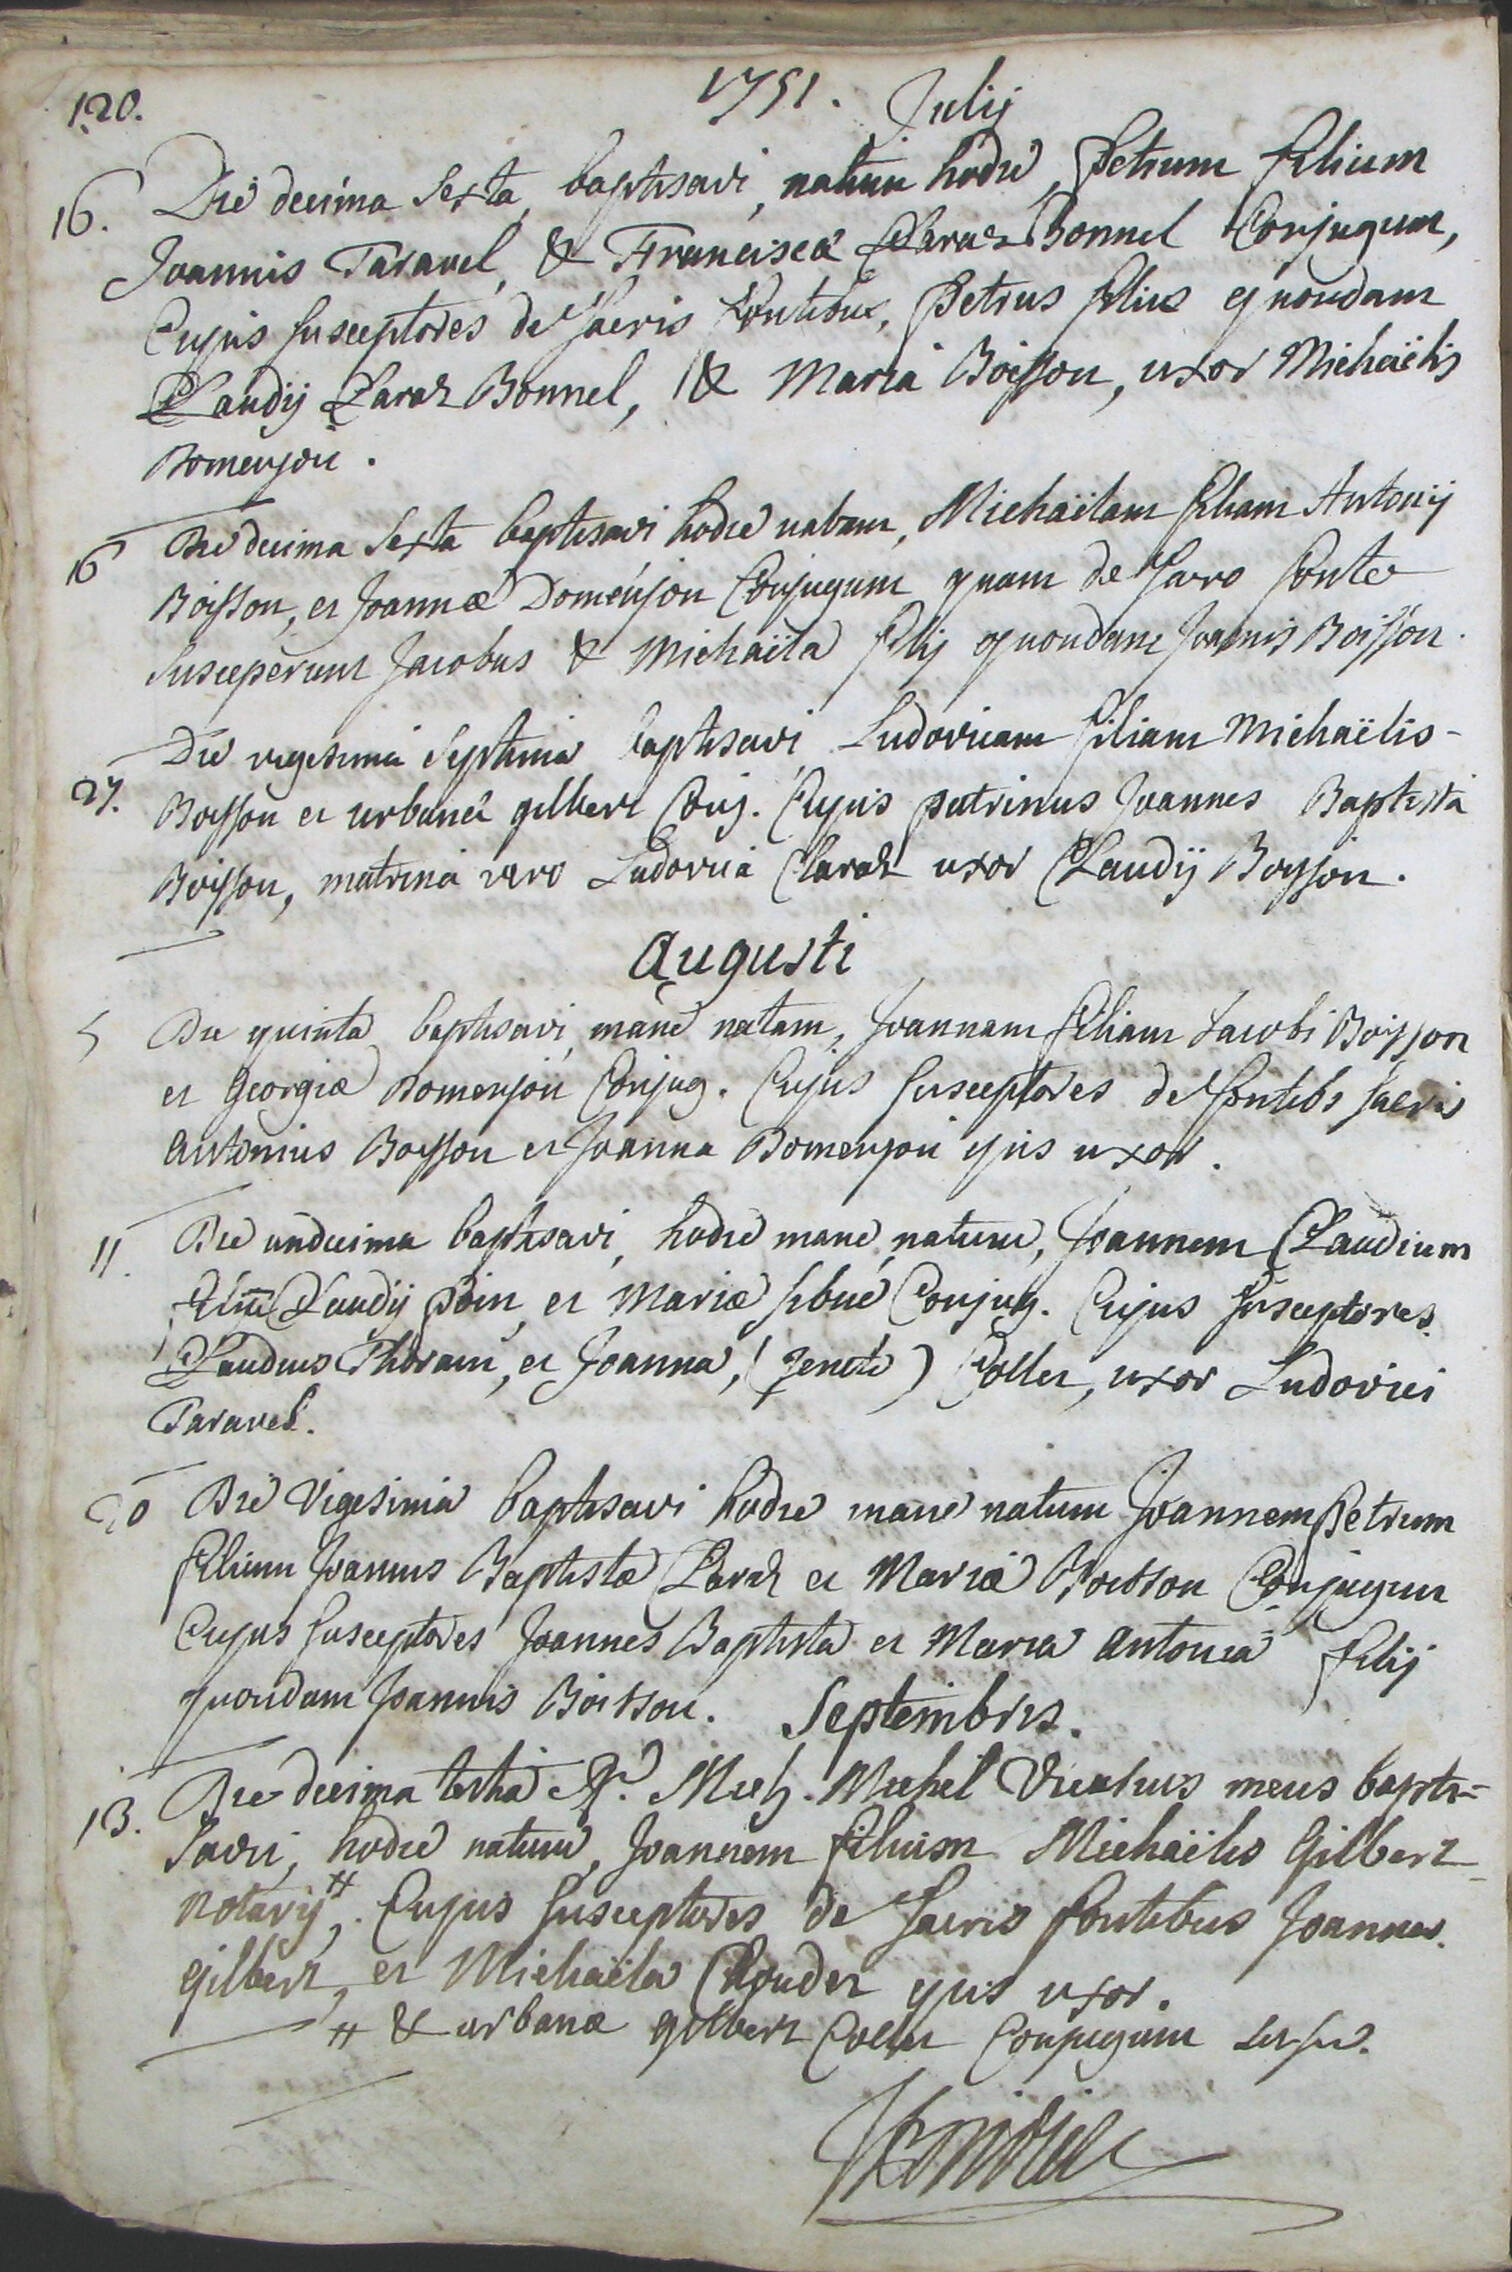 120.
1751. Julij
16. Die decima sexta, baptisavi, natum hodie, Petrum filium
Joannis Taravel, & Franciscæ Claraz Bonnel Conjugum,
Cujus susceptores de sacris fontibus, Petrus filius quondam
Claudij Claraz Bonnel, & Maria Boisson, uxor Michaëlis
Domenjon.
16 Die decima sexta baptisavi hodie natam, Michaëlam filiam Antonij
Boisson, et Joannæ Domenjon Conjugum quam de sacro fonte
susceperunt Jacobus & Michaëla filij quondam Joannis Boisson.
27. Die vigesima septima baptisavi Ludovicam filiam Michaëlis
Boisson et urbanæ gilbert Conj. Cujus patrinus Joannes Baptista
Boisson, matrina vero Ludovica Claraz uxor Claudij Boisson.
Augusti
5 Die quinta baptisavi, mane natam, Joannam filiam Jacobi Boisson
et Georgiæ Domenjon Conjug. Cujus susceptores de fontibs sacris
Antonius Boisson et Joanna Domenjon ejus uxor.
11. Die undecima baptisavi, hodie mane, natum, Joannem Claudium
Claudij Poin, et Mariæ Conjug. Cujus susceptores
Claudius Thorain, et Joanna, Collet, uxor Ludovici
Taravel.
20 Die Vigesima baptisavi hodie mane natum Joannem Petrum
filium Joannis Baptistæ Claraz et Mariæ Boisson Conjugum
Cujus susceptores Joannes Baptista et Maria Antonia filij
quondam Joannis Boisson. Septembris.
13. Die decima tertia Rd. Mich. Vicarius meus bapti=
savi, hodie natum, Joannem filium Michaëlis Gilbert
Notarij #, Cujus susceptores de sacris fontibus Joannes
gilbert, et Michaëla ejus uxor.
# & urbanæ gilbert Collet Conjugum